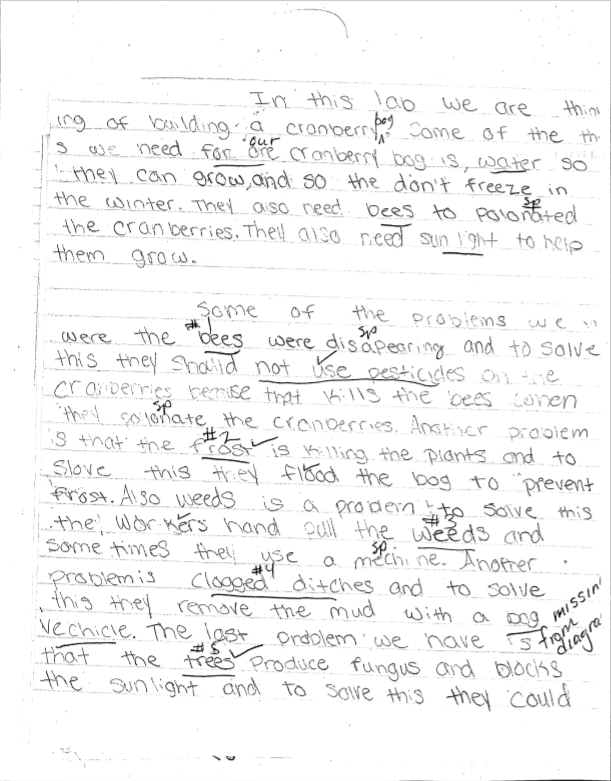 In this lab we are thin
ing of building a cranberry bog. Some of the th
s we need for our are cranberry bog is, water so
they can grow, and so the don't freeze in
the winter. They also need bees to polonated sp
the cranberries. They also need sun light to help
them grow.
Some of the problems we
were the # bees were disapearing sp and to solve
this they should not use pesticides on the
cranberries becuse that kills the bees when
they polonate sp the cranberries. Another problem
is that the #2 frost is killing the plants and to
slove this they flood the bog to prevent
frost. Also weeds is a problem to solve this
the workers hand pull the #3 weeds and
some times they use a mechine sp. Another
problem is #4 clogged ditches and to solve
this they remove the mud with a bog missin
vechicle. The last problem we have is from diagra
that the #5 trees produce fungus and blocks
the sunlight and to solve this they could